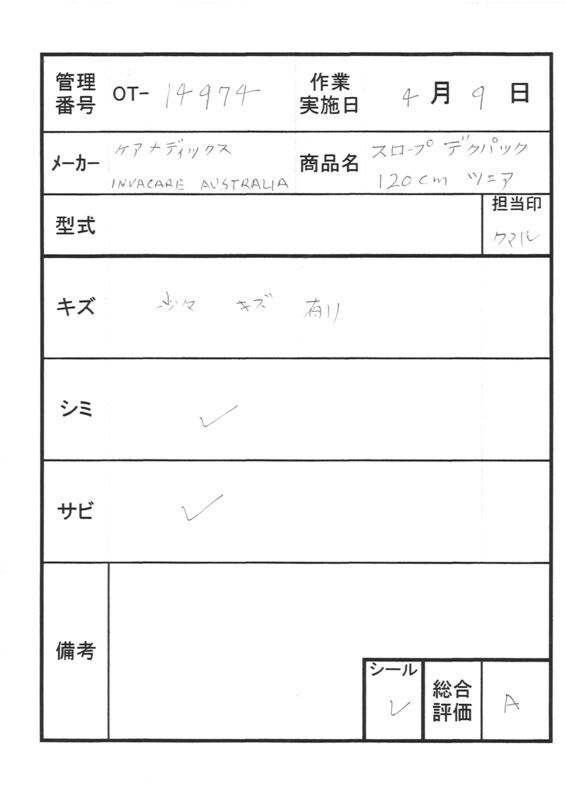 管理番号 OT- 14974 作業実施日 4月9日
メーカー ケアメディックス
INVACARE AUSTRALIA
商品名 スロープ デクパック
120cm ツニア
型式
担当印
クマル
キズ 少々 キズ 有り
シミ ✓
サビ ✓
備考
シール ✓
総合評価 A